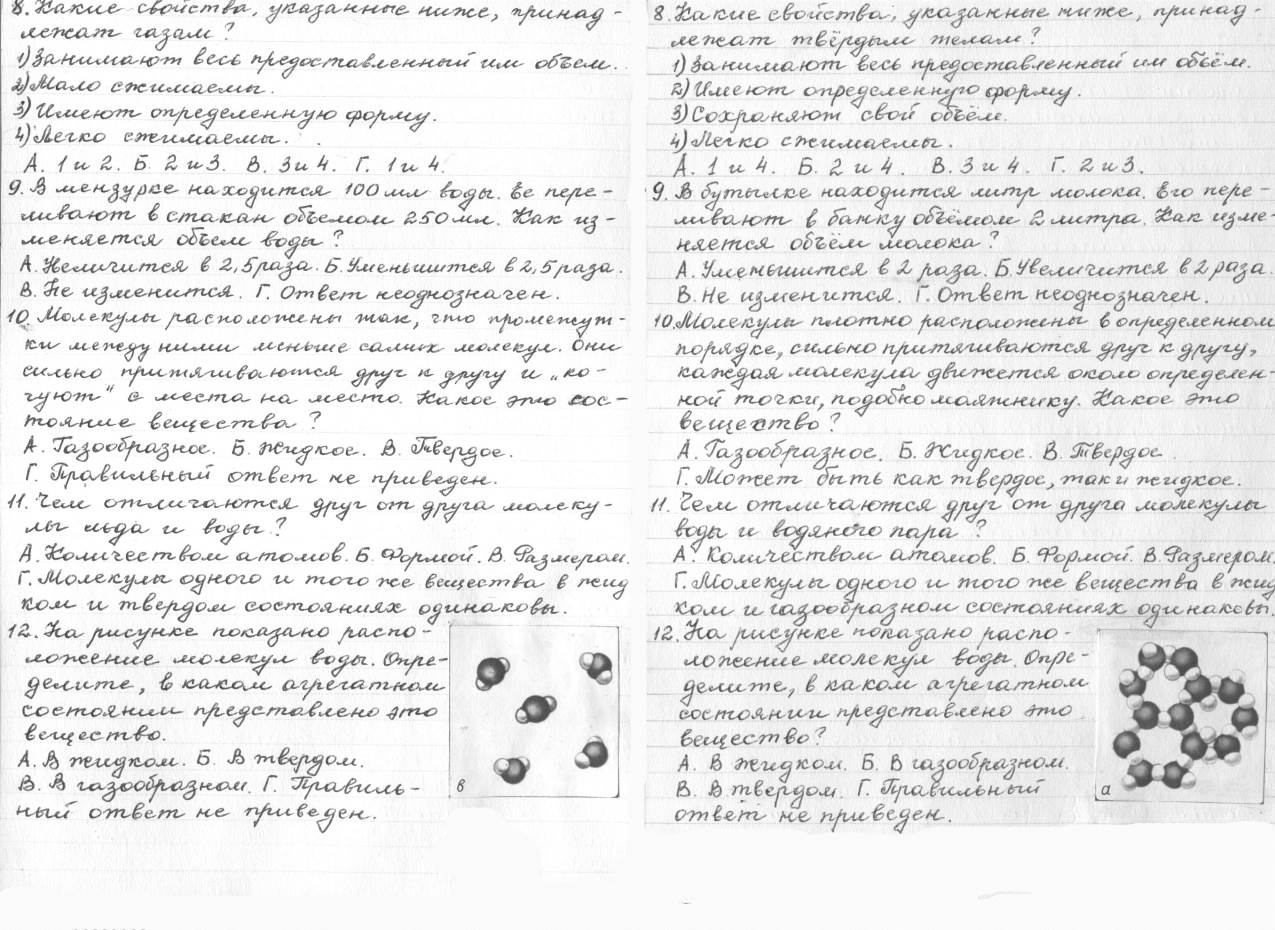 8. Какие свойства, указанные ниже, принад-
лежат газам?
1) Занимают весь предоставленный им объем.
2) Мало сжимаемы.
3) Имеют определенную форму.
4) Легко сжимаемы.
А. 1 и 2. Б. 2 и 3. В. 3 и 4. Г. 1 и 4.
9. В мензурке находится 100 мл воды. Ее пере-
ливают в стакан объемом 250 мл. Как из-
меняется объем воды?
А. Увеличится в 2,5 раза. Б. Уменьшится в 2,5 раза.
В. Не изменится. Г. Ответ неоднозначен.
10. Молекулы расположены так, что промежут-
ки между ними меньше самих молекул. Они
сильно притягиваются друг к другу и „ко-
чуют“ с места на место. Какое это сос-
тояние вещества?
А. Газообразное. Б. Жидкое. В. Твердое.
Г. Правильный ответ не приведен.
11. Чем отличаются друг от друга молеку-
лы льда и воды?
А. Количеством атомов. Б. Формой. В. Размером.
Г. Молекулы одного и того же вещества в жид
ком и твердом состояниях одинаковы.
12. На рисунке показано распо-
ложение молекул воды. Опре-
делите, в каком агрегатном
состоянии представлено это
вещество.
А. В жидком. Б. В твердом.
В. В газообразном. Г. Правиль-
ный ответ не приведен.
в
8. Какие свойства, указанные ниже, принад-
лежат твёрдым телам?
1) Занимают весь предоставленный им объём.
2) Имеют определенную форму.
3) Сохраняют свой объём.
4) Легко сжимаемы.
А. 1 и 4. Б. 2 и 4. В. 3 и 4. Г. 2 и 3.
9. В бутылке находится литр молока. Его пере-
ливают в банку объёмом 2 литра. Как изме-
няется объём молока?
А. Уменьшится в 2 раза. Б. Увеличится в 2 раза.
В. Не изменится. Г. Ответ неоднозначен.
10. Молекулы плотно расположены в определенном
порядке, сильно притягиваются друг к другу,
каждая молекула движется около определен-
ной точки, подобно маятнику. Какое это
вещество?
А. Газообразное. Б. Жидкое. В. Твердое.
Г. Может быть как твердое, так и жидкое.
11. Чем отличаются друг от друга молекулы
воды и водяного пара?
А. Количеством атомов. Б. Формой. В. Размером.
Г. Молекулы одного и того же вещества в жид
ком и газообразном состояниях одинаковы.
12. На рисунке показано распо-
ложение молекул воды. Опре-
делите, в каком агрегатном
состоянии представлено это
вещество?
А. В жидком. Б. В газообразном.
В. В твердом. Г. Правильный
ответ не приведен.
а